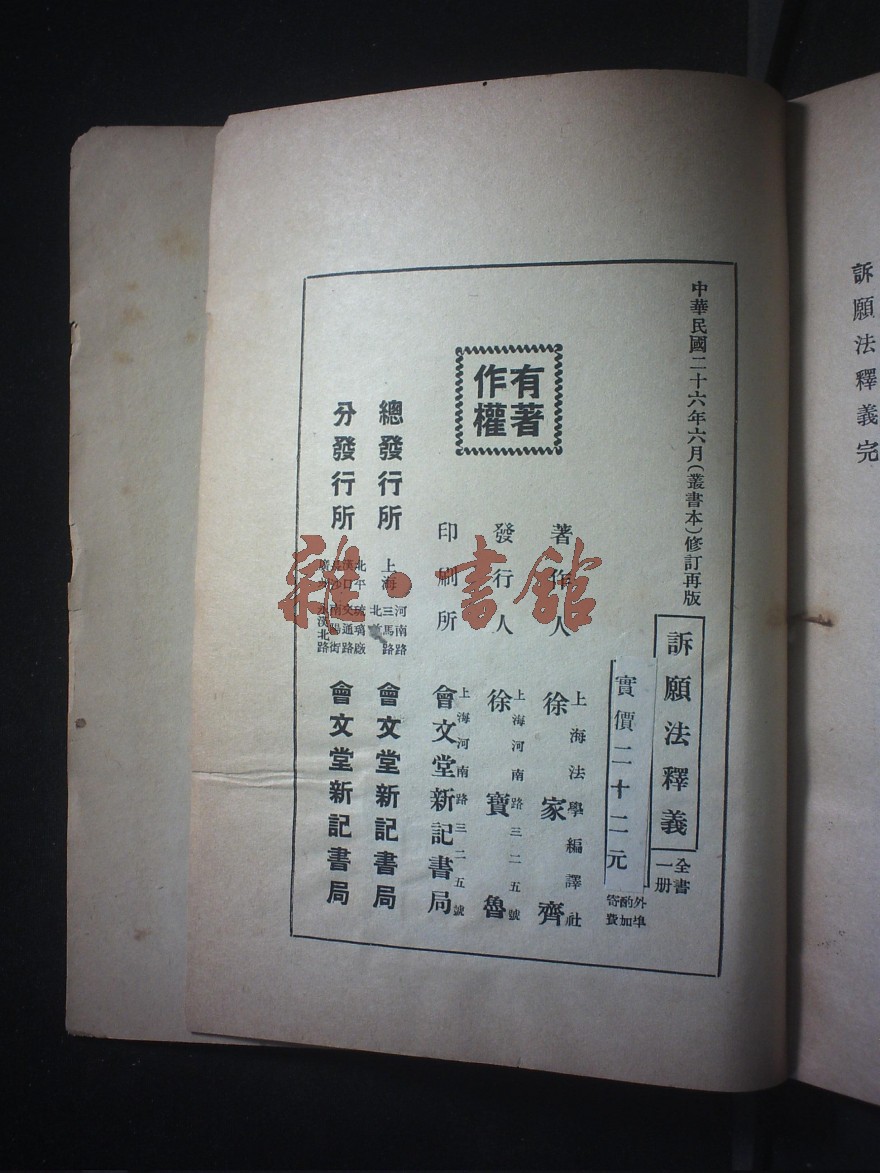 訴願法釋義完
中華民國二十六年六月(叢書本)修訂再版
訴願法釋義
全書
一册
實價二十二元
外埠
酌加
寄費
有著
作權
著作人
上海法學編譯社
徐家齊
發行人
上海河南路三二五號
徐寶魯
印刷所
上海河南路三二五號
會文堂新記書局
總發行所
上海
河南路
三馬路
北首
會文堂新記書局
分發行所
北平琉璃廠
漢口交通路
南陽街
永漢北路
會文堂新記書局
雜·書館